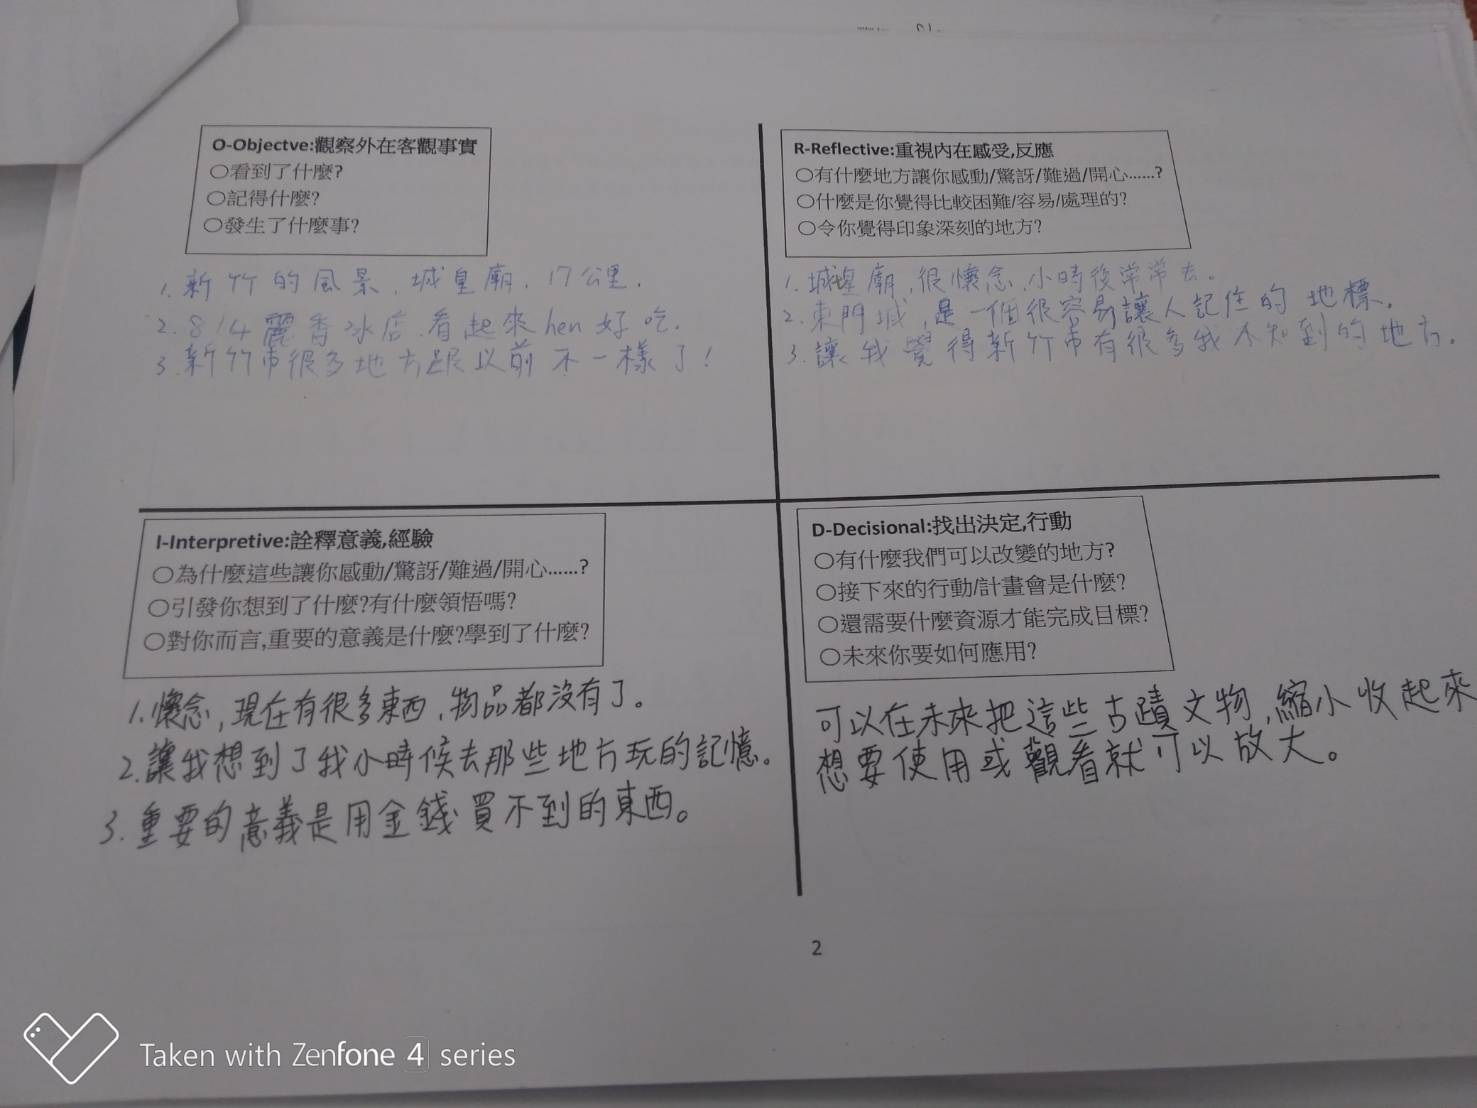 O-Objectve:觀察外在客觀事實
○看到了什麼?
○記得什麼?
○發生了什麼事?
1. 新竹的風景、城皇廟、17公里.
2. 8/4麗香冰店.看起來hen好吃.
3. 新竹市很多地方跟以前不一樣了!
R-Reflective:重視內在感受,反應
○有什麼地方讓你感動/驚訝/難過/開心......?
○什麼是你覺得比較困難/容易/處理的?
○令你覺得印象深刻的地方?
1. 城皇廟,很懷念,小時後常常去。
2. 東門城,是一個很容易讓人記住的地標.
3. 讓我覺得新竹市有很多我不知到的地方.
I-Interpretive:詮釋意義,經驗
○為什麼這些讓你感動/驚訝/難過/開心......?
○引發你想到了什麼?有什麼領悟嗎?
○對你而言,重要的意義是什麼?學到了什麼?
1. 懷念,現在有很多東西、物品都沒有了。
2. 讓我想到了我小時候去那些地方玩的記憶。
3. 重要的意義是用金錢買不到的東西。
D-Decisional:找出決定,行動
○有什麼我們可以改變的地方?
○接下來的行動/計畫會是什麼?
○還需要什麼資源才能完成目標?
○未來你要如何應用?
可以在未來把這些古蹟文物,縮小收起來
想要使用或觀看就可以放大。
2
Taken with Zenfone 4 series